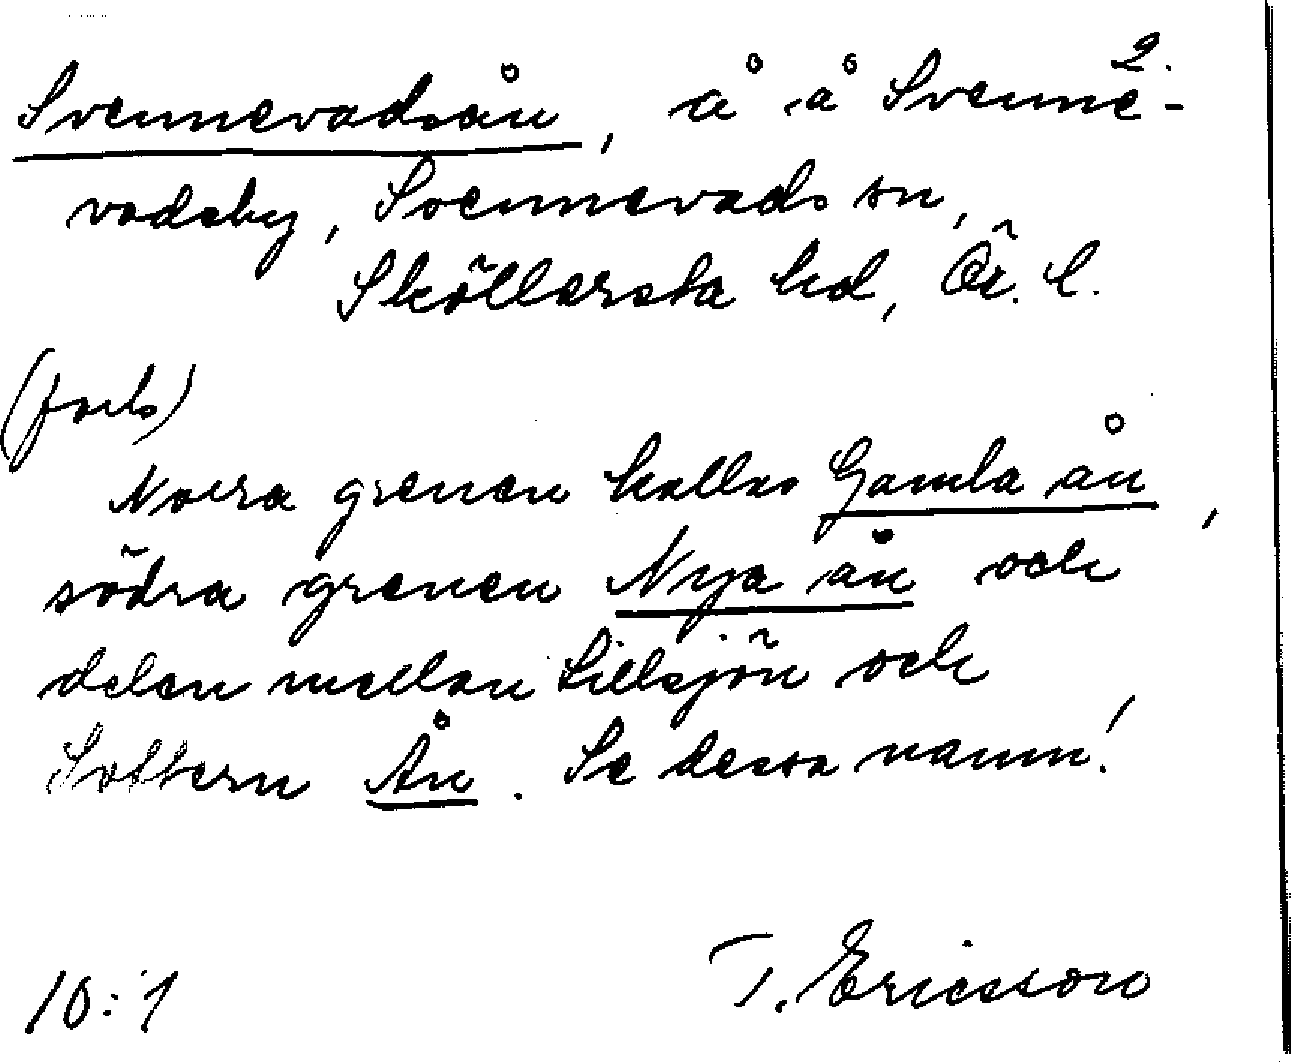 2.
Svennevadsån, å å Svenne-
vadsby, Svennevads sn,
Sköllersta hd, Ör. l.
(forts)
Norra grenen kallas Gamla ån,
södra grenen Nya ån och
delen mellan Lillsjön och
Sottern Ån. Se dessa namn!
10:1 T. Ericsson